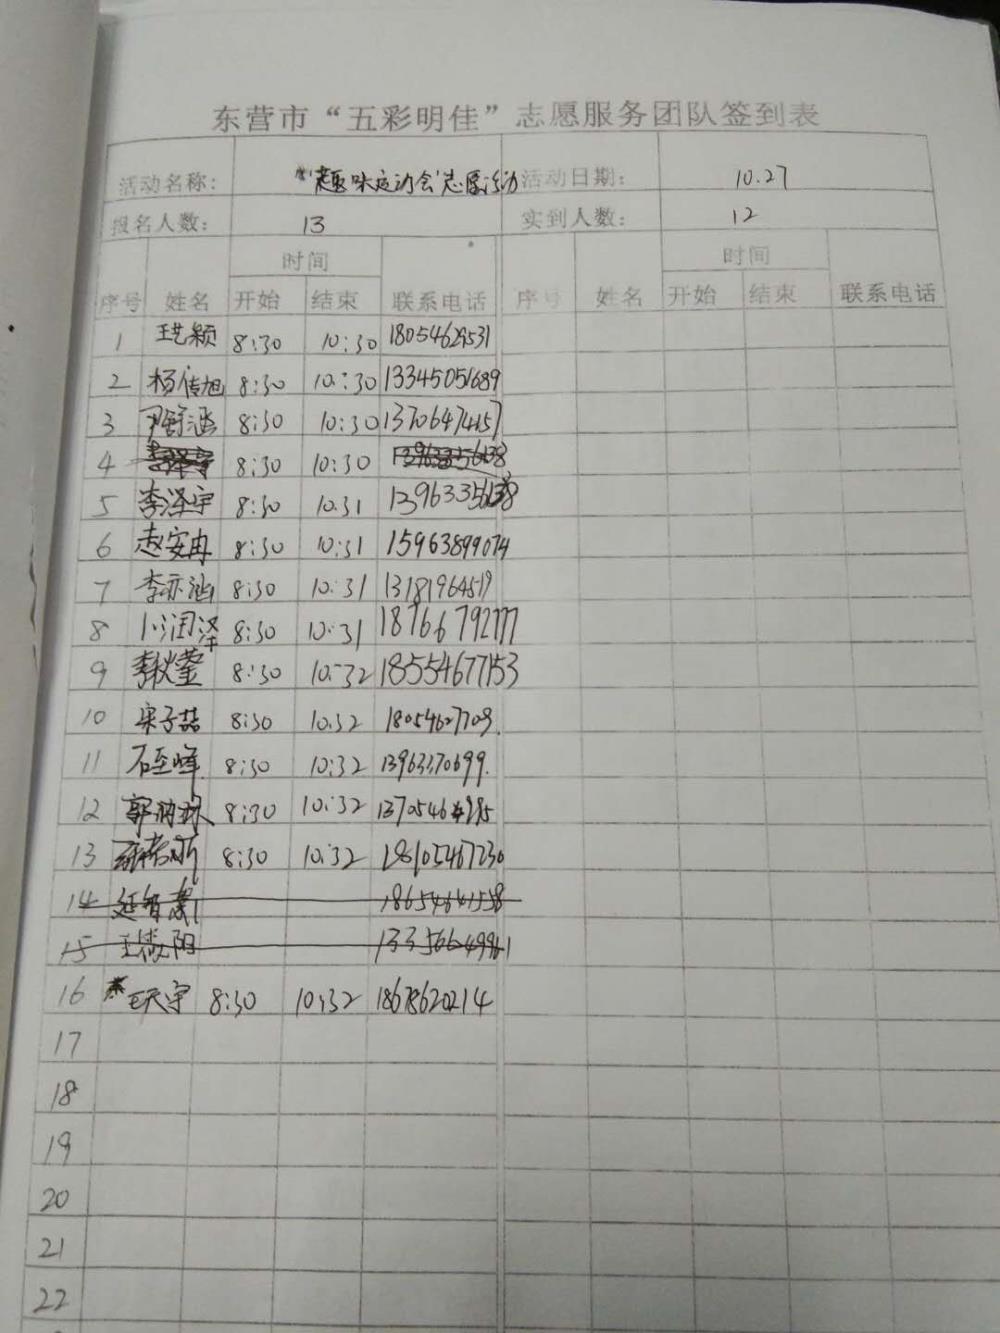 东营市“五彩明佳”志愿服务团队签到表
活动名称： “趣味运动会”志愿活动 活动日期： 10.27
报名人数： 13 实到人数： 12
时间 时间
序号 姓名 开始 结束 联系电话 序号 姓名 开始 结束 联系电话
1 王艺颖 8:30 10:30 18054629531
2 杨传旭 8:30 10:30 13345051689
3 尹舒涵 8:30 10:30 13706474157
4 李泽宇 8:30 10:30
5 李泽宇 8:30 10.31
6 赵安冉 8:30 10:31 15963899074
7 李亦涵 8:30 10:31
8 8:30 10:31 18766792777
9 8:30 10:32 18554677153
10 宋子喆 8:30 10.32
11 石至峰 8:30 10:32 13963370699.
12 8:30 10:32
13 8:30 10:32 18105467230
14 18654641558
15
16 王天宇 8:30 10:32 18678620214
17
18
19
20
21
22